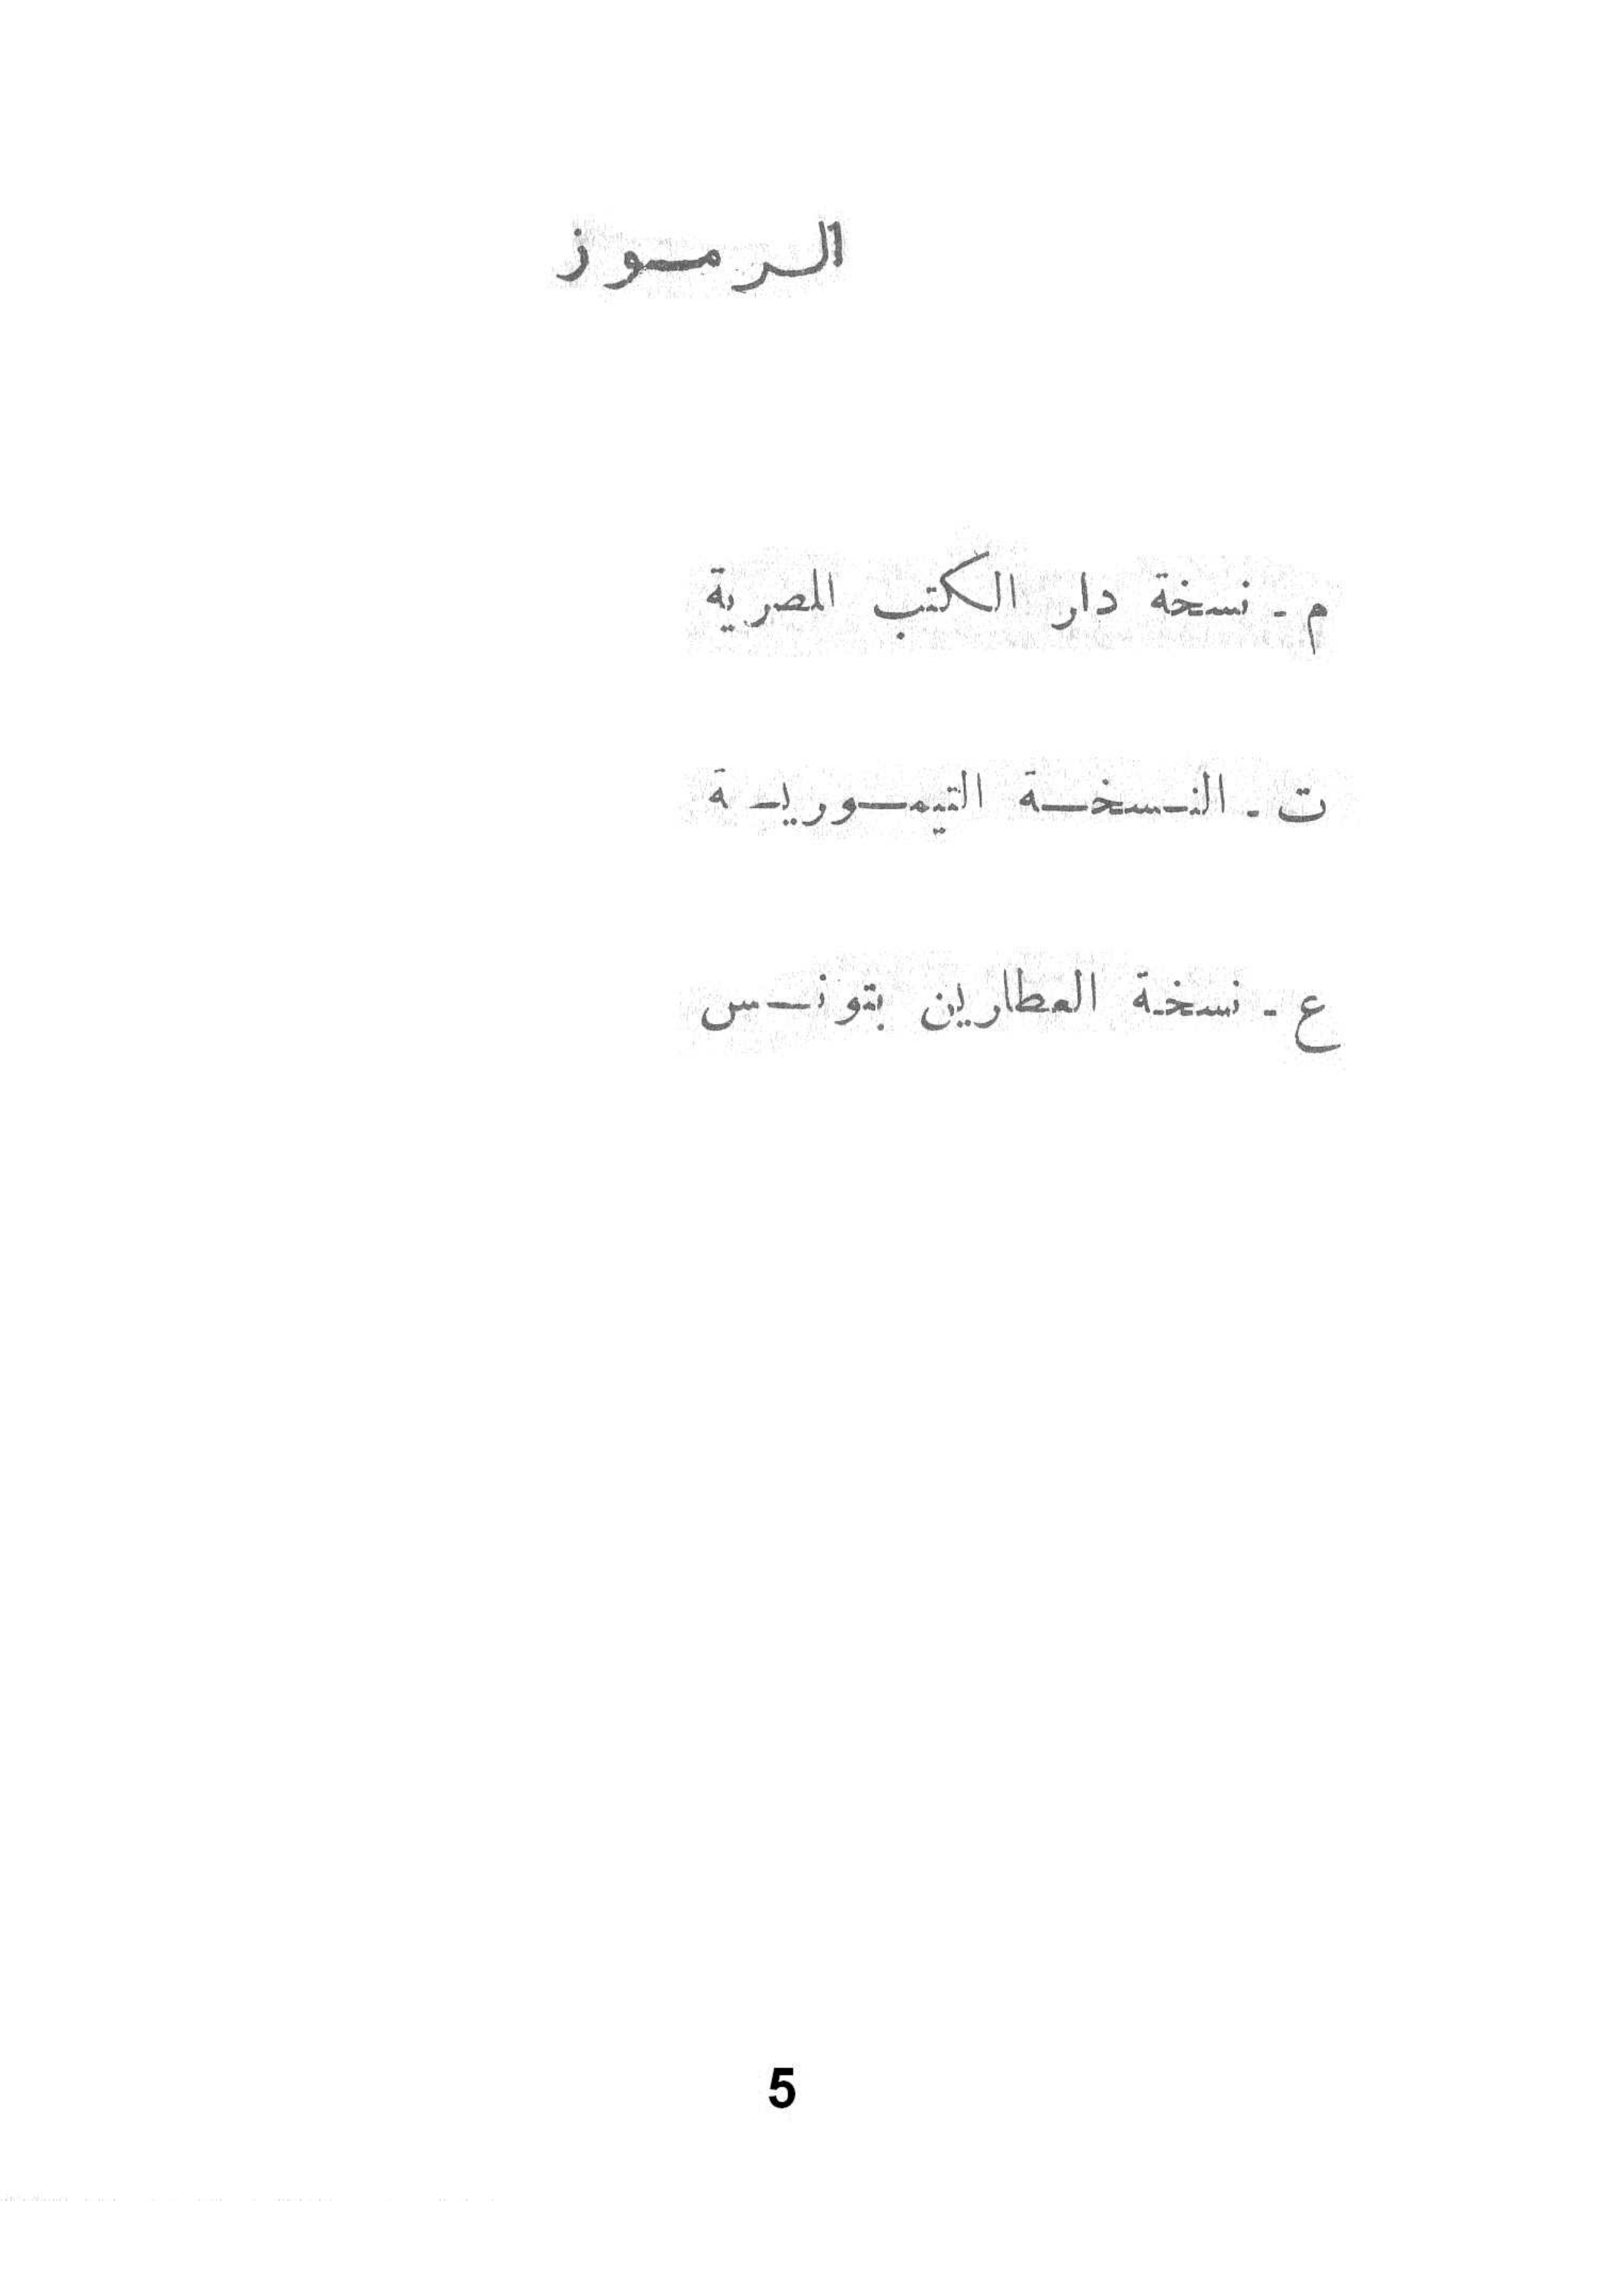 الرموز
م - نسخة دار الكتب المصرية
ت - النسخة التيمورية
ع - نسخة العطارين بتونس
5